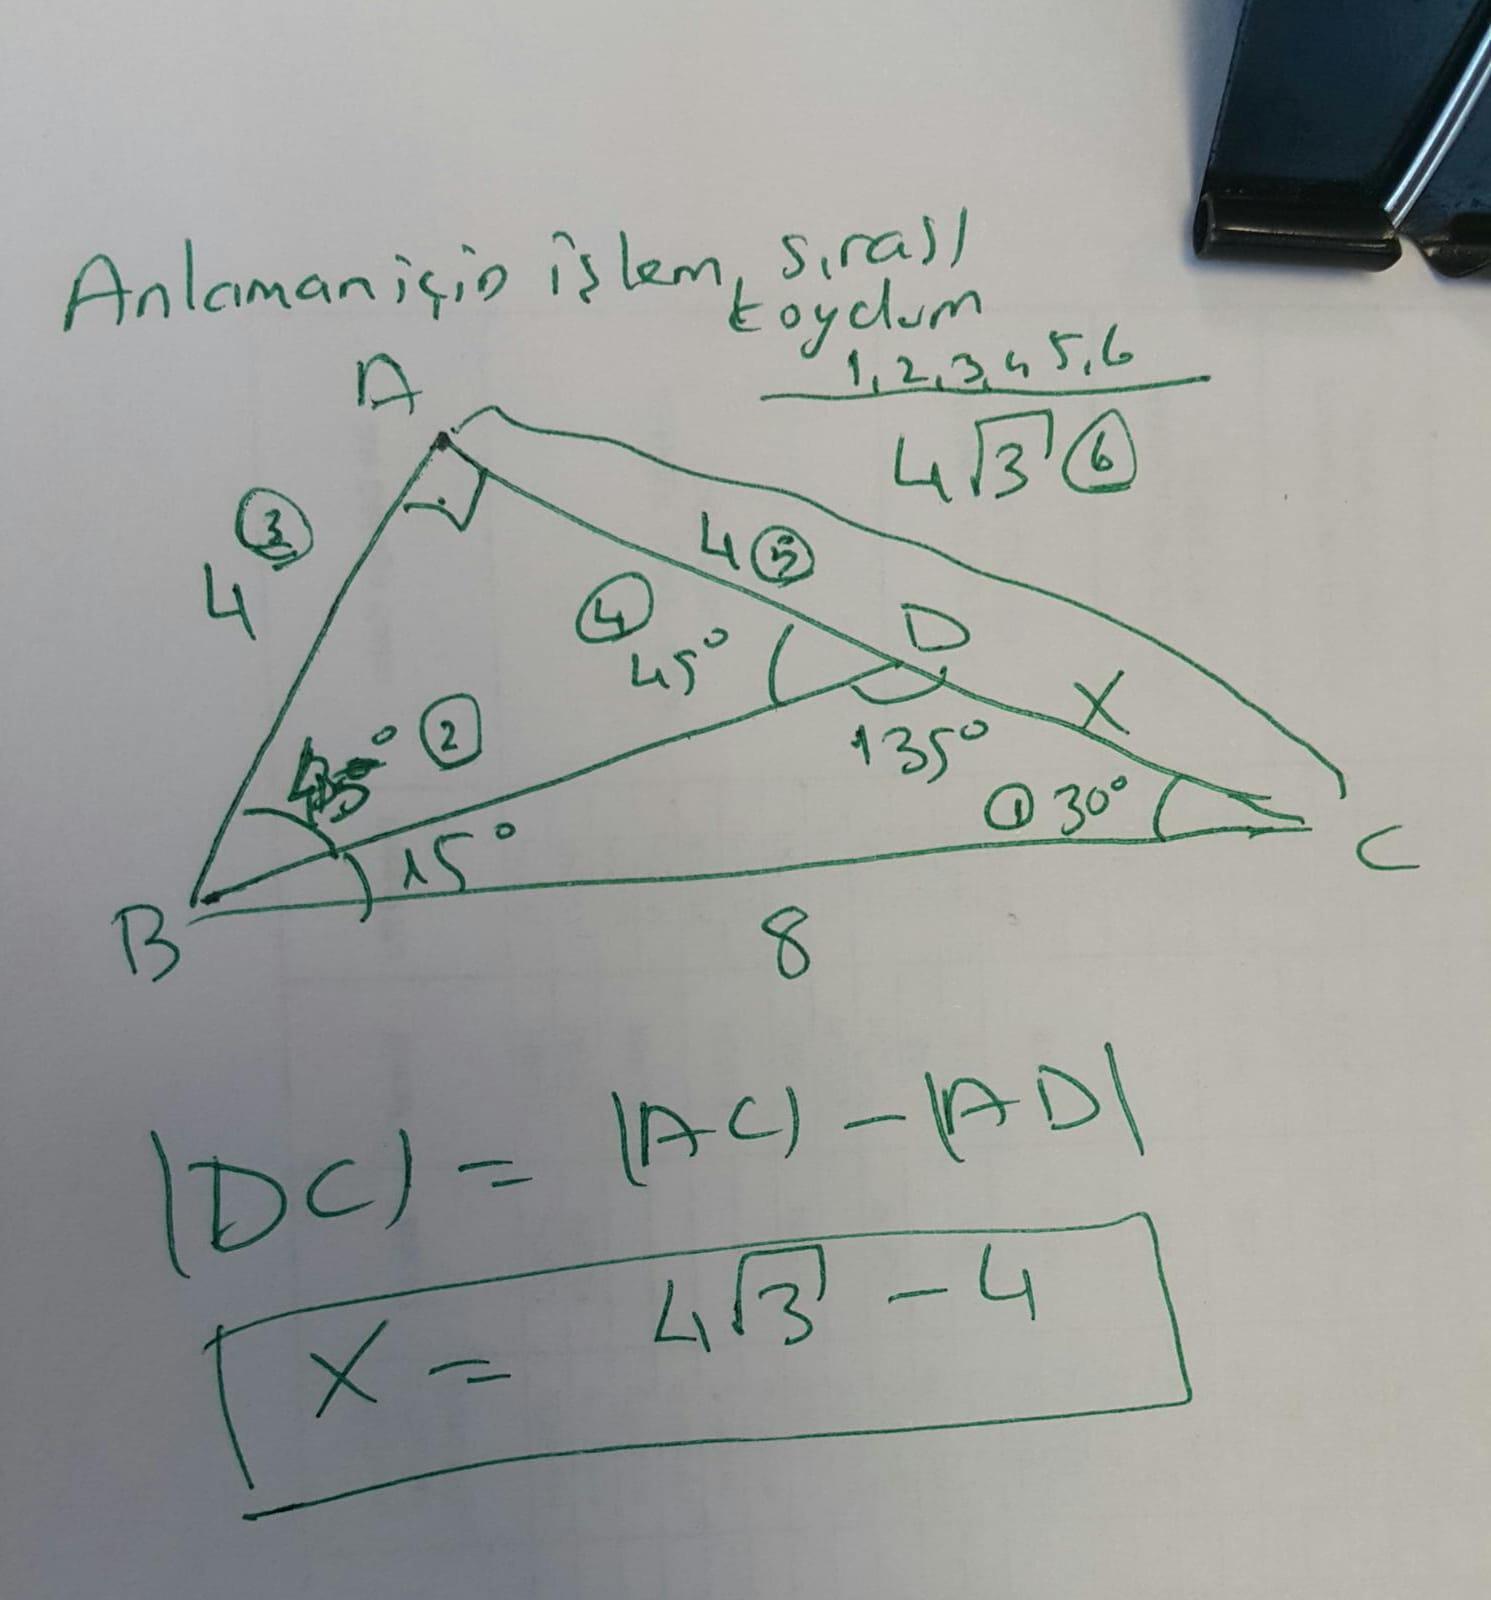 Anlaman için işlem sırası
koydum
1,2,3,4 5,6
A
4√3 6
3
4
4 5
4
45°
D
X
2
45°
135°
1 30°
15°
C
B
8
|DC| = |AC| - |AD|
X = 4√3 - 4